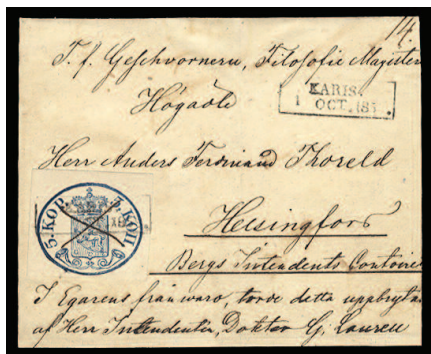 14.
T. f. Geschvornern, Filosofie Magistern
Högädle
KARIS.
1 OCT. 185
Herr Anders Ferdinand Thoreld
5. KOP. 5. КОП.
Helsingfors
Bergs Intendents Contoiret
I Egarens frånwaro, torde detta uppbrytas
af Herr Intendenten, Doktor G. Laurell